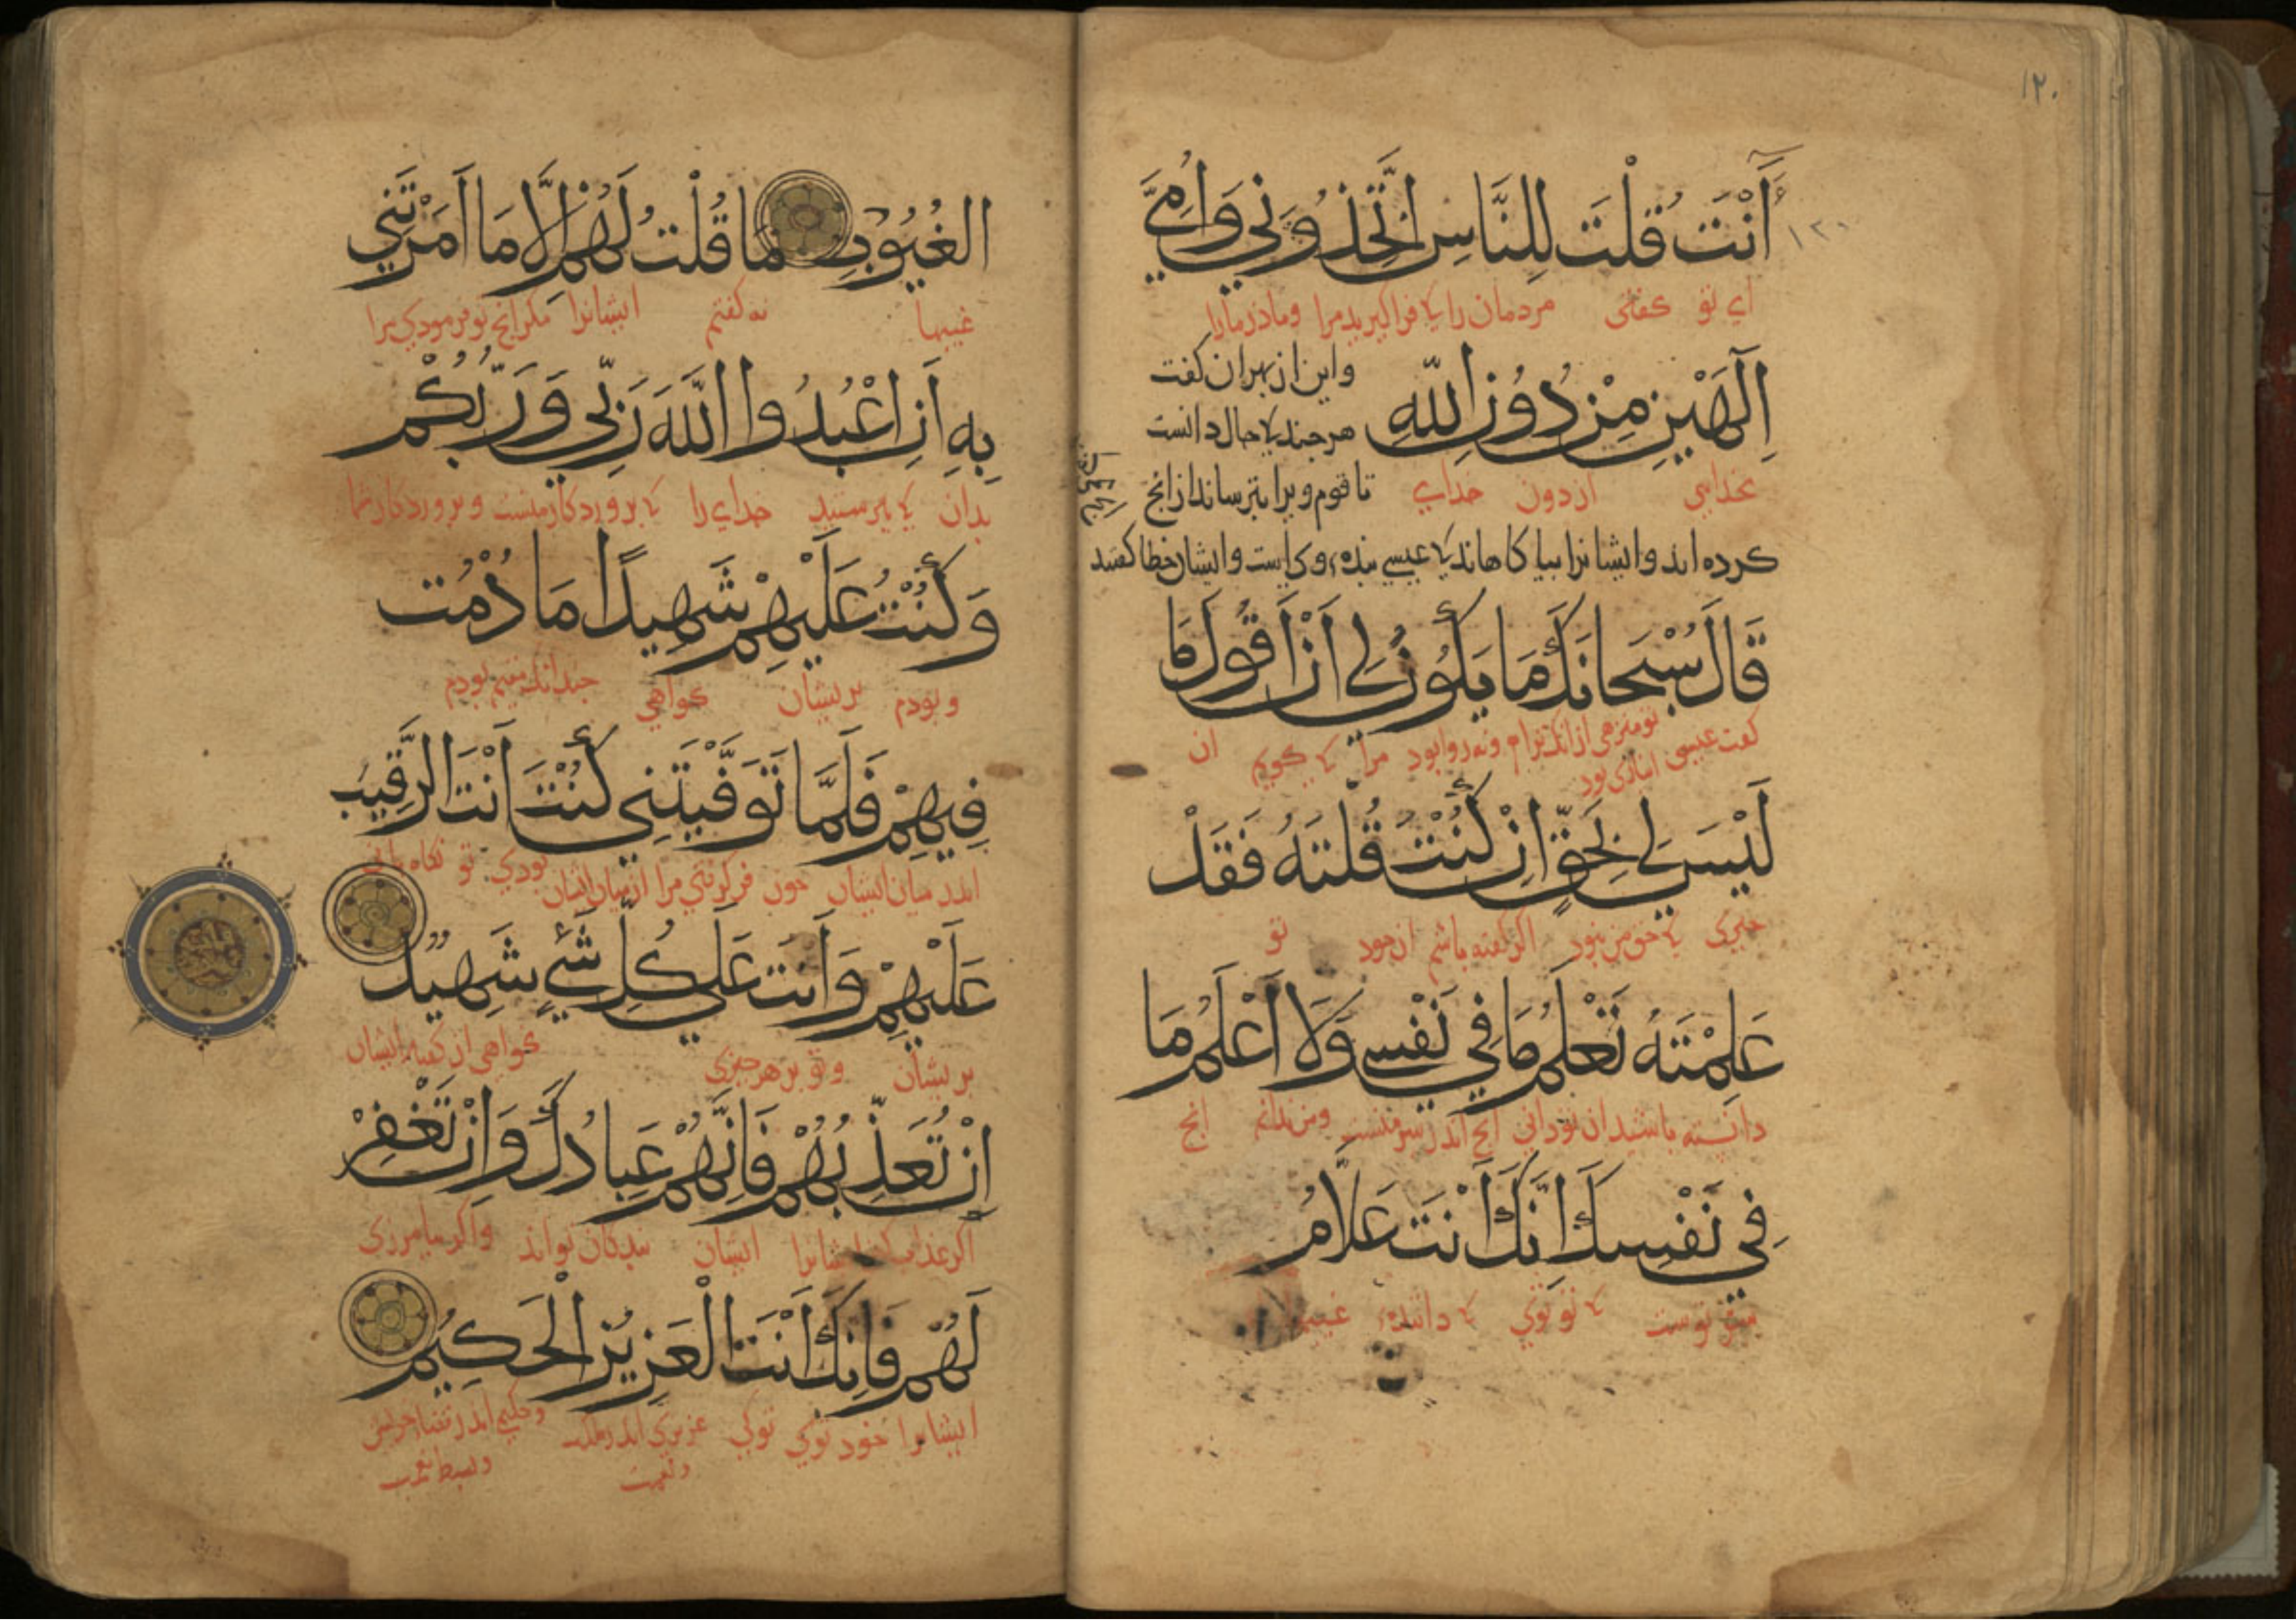 ١٢٠
ءَأَنْتَ قُلْتَ لِلنَّاسِ اتَّخِذُونِي وَأُمِّيَ
١٢٠
اي تو كفتى مردمان را كه فراكيريد مرا وماذر مارا
إِلَهَيْنِ مِنْ دُونِ اللَّهِ
واين از بهر ان كفت
هرجند كه حال دانست
بخدايي از دون خداي
تا قوم ويرا بترساند از انج
كرده اند وايشانرا بياكاهاند كه عيسى بنده وى است وايشان خطا كفتند
قَالَ سُبْحَانَكَ مَا يَكُونُ لِي أَنْ أَقُولَ مَا
كفت عيسى تو منزهى از انك ترا ونه روا بود مرا كه كويم ان
انبازى بود
لَيْسَ لِي بِحَقٍّ إِنْ كُنْتُ قُلْتُهُ فَقَدْ
جيزى كه حق من نبود اكر كفته باشم ان خود تو
عَلِمْتَهُ تَعْلَمُ مَا فِي نَفْسِي وَلَا أَعْلَمُ مَا
دانسته باشيد ان تو دانى انج اندر سر منست ومن ندانم انج
فِي نَفْسِكَ إِنَّكَ أَنْتَ عَلَّامُ
سر توست كه تو توي كه داننده غيبها
الْغُيُوبِ مَا قُلْتُ لَهُمْ إِلَّا مَا أَمَرْتَنِي
غيبها نه كفتم ايشانرا مكر انج تو فرمودي مرا
بِهِ أَنِ اعْبُدُوا اللَّهَ رَبِّي وَرَبَّكُمْ
بدان كه بپرستيد خداي را كه پروردكار منست وپروردكار شما
وَكُنْتُ عَلَيْهِمْ شَهِيدًا مَا دُمْتُ
وبودم بريشان كواهي جندانك مقيم بودم
فِيهِمْ فَلَمَّا تَوَفَّيْتَنِي كُنْتَ أَنْتَ الرَّقِيبَ
اندر ميان ايشان جون فركرفتي مرا از ميان ايشان بودي تو نكاه بان
عَلَيْهِمْ وَأَنْتَ عَلَى كُلِّ شَيْءٍ شَهِيدٌ
بريشان وتو بر هر جيزى كواهي از كفتار ايشان
إِنْ تُعَذِّبْهُمْ فَإِنَّهُمْ عِبَادُكَ وَإِنْ تَغْفِرْ
اكر عذاب كني ايشانرا ايشان بندكان تواند واكر بيامرزى
لَهُمْ فَإِنَّكَ أَنْتَ الْعَزِيزُ الْحَكِيمُ
ايشانرا خود توي توي عزيزي اندر ملك وحكيم اندر